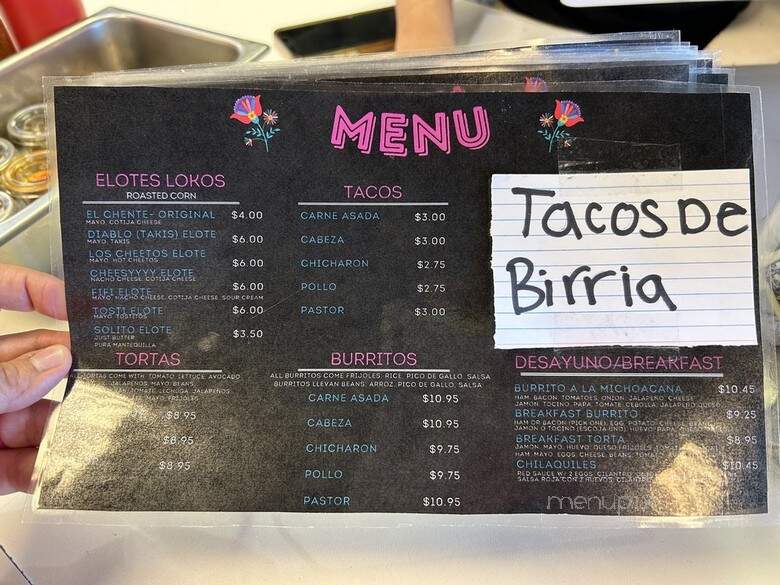 MENU
ELOTES LOKOS
ROASTED CORN
EL CHENTE- ORIGINAL $4.00
MAYO, COTIJA CHEESE
DIABLO (TAKIS) ELOTE $6.00
MAYO, TAKIS
LOS CHEETOS ELOTE $6.00
MAYO, HOT CHEETOS
CHEESYYYY ELOTE $6.00
NACHO CHEESE, COTIJA CHEESE
FIFI ELOTE $6.00
MAYO, NACHO CHEESE, COTIJA CHEESE, SOUR CREAM
TOSTI ELOTE $6.00
MAYO, TOSTITOS
SOLITO ELOTE $3.50
JUST BUTTER
PURA MANTEQUILLA
TORTAS
TORTAS COME WITH TOMATO, LETTUCE, AVOCADO
JALAPENOS, MAYO, BEANS
TOMATE, LECHUGA, JALAPENOS
$8.95
$8.95
$8.95
TACOS
CARNE ASADA $3.00
CABEZA $3.00
CHICHARON $2.75
POLLO $2.75
PASTOR $3.00
BURRITOS
ALL BURRITOS COME FRIJOLES, RICE, PICO DE GALLO, SALSA
BURRITOS LLEVAN BEANS, ARROZ, PICO DE GALLO, SALSA
CARNE ASADA $10.95
CABEZA $10.95
CHICHARON $9.75
POLLO $9.75
PASTOR $10.95
Tacos De
Birria
DESAYUNO/BREAKFAST
BURRITO A LA MICHOACANA $10.45
HAM, BACON, TOMATOES, ONION, JALAPENO, CHEESE
JAMON, TOCINO, PAPA, TOMATE, CEBOLLA, JALAPENO, QUESO
BREAKFAST BURRITO $9.25
HAM OR BACON (PICK ONE), EGG, POTATO, CHEESE,
JAMON O TOCINO (ESCOJA UNO), HUEVO, PAPA,
BREAKFAST TORTA $8.95
JAMON, MAYO, HUEVO, QUESO, FRIJOLES
HAM, MAYO, EGGS, CHEESE, BEANS,
CHILAQUILES $10.45
RED SAUCE W/ 2 EGGS, CILANTRO,
SALSA ROJA CON 2 HUEVOS,